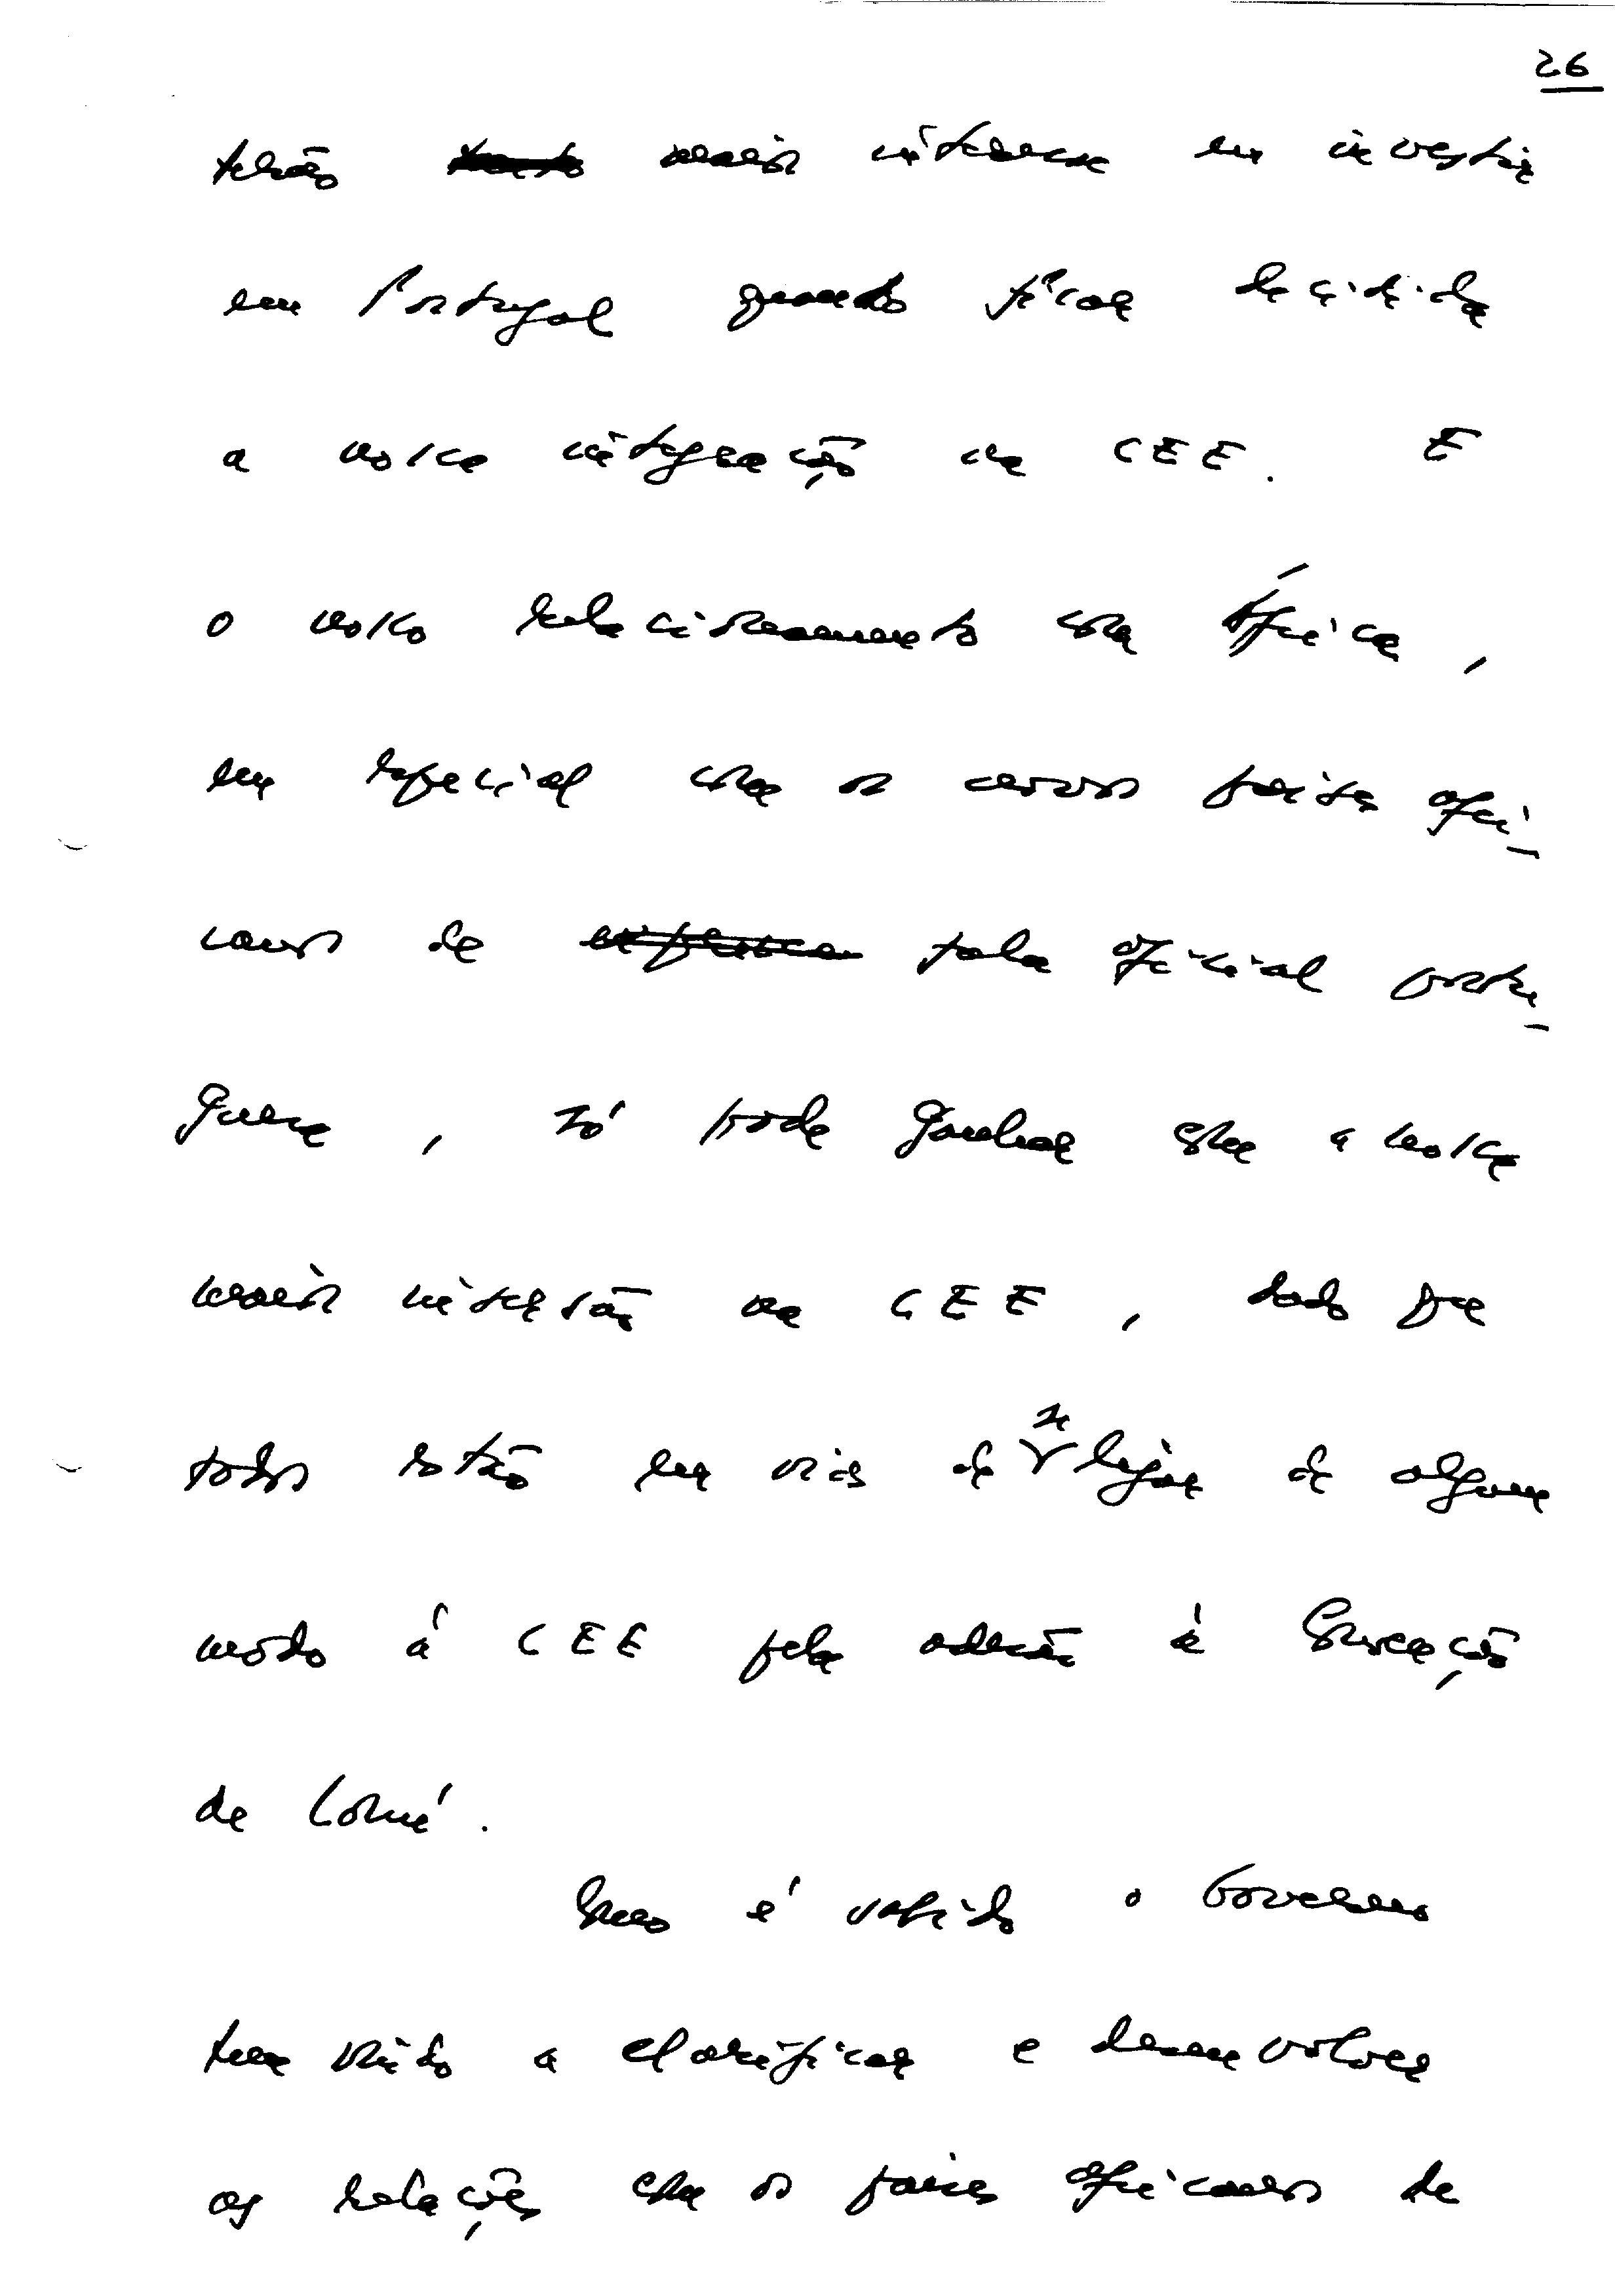 26
terão ~~tanto~~ maior interesse em investir
em Portugal quando ficar decidida
a nossa integração na CEE. E
o nosso relacionamento com África,
em especial com os novos países afri-
canos de ~~expressão~~ fala oficial portu-
guesa, só pode ganhar com a nossa
maior inserção na CEE, dado que
todos estão em vias de se ligar de algum
modo à CEE pela adesão à Convenção
de Lomé.
Como é sabido o Governo
tem vindo a clarificar e desenvolver
as relações com os países africanos de